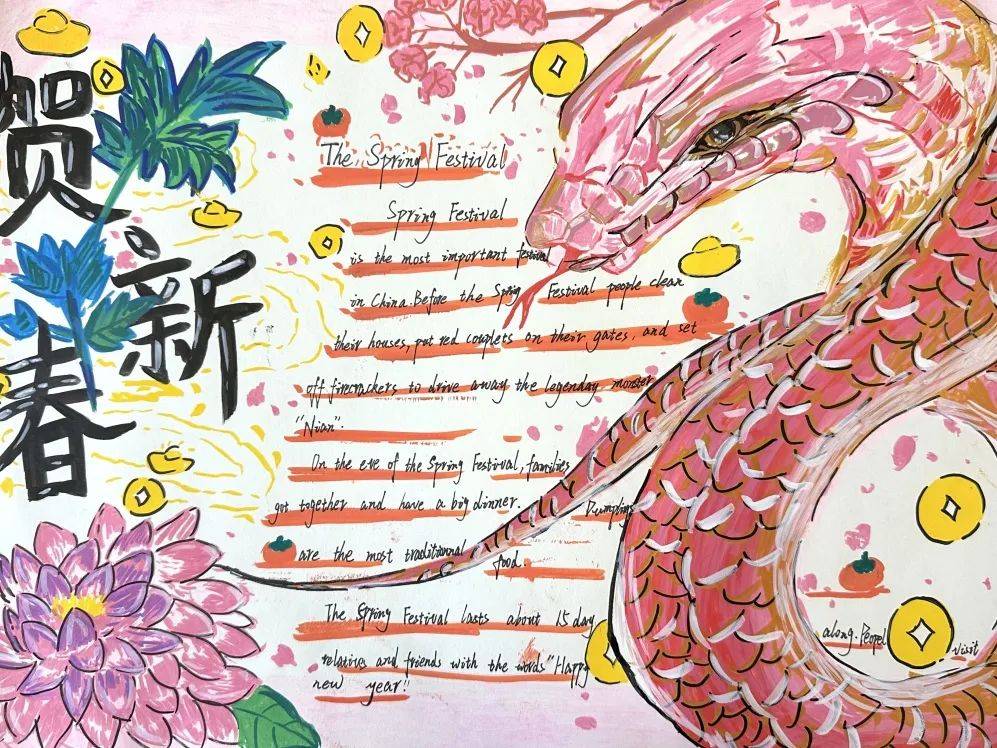 贺
新
春
The Spring Festival
Spring Festival
is the most important festival
in China. Before the Spring Festival people clean
their houses, put red couplets on their gates, and set
off firecrackers to drive away the legendary monster
"Nian".
On the eve of the Spring Festival, families
got together and have a big dinner. Dumplings
are the most traditional food.
The Spring Festival lasts about 15 day along. Peopel visit
relatives and friends with the words "Happy
new year!"